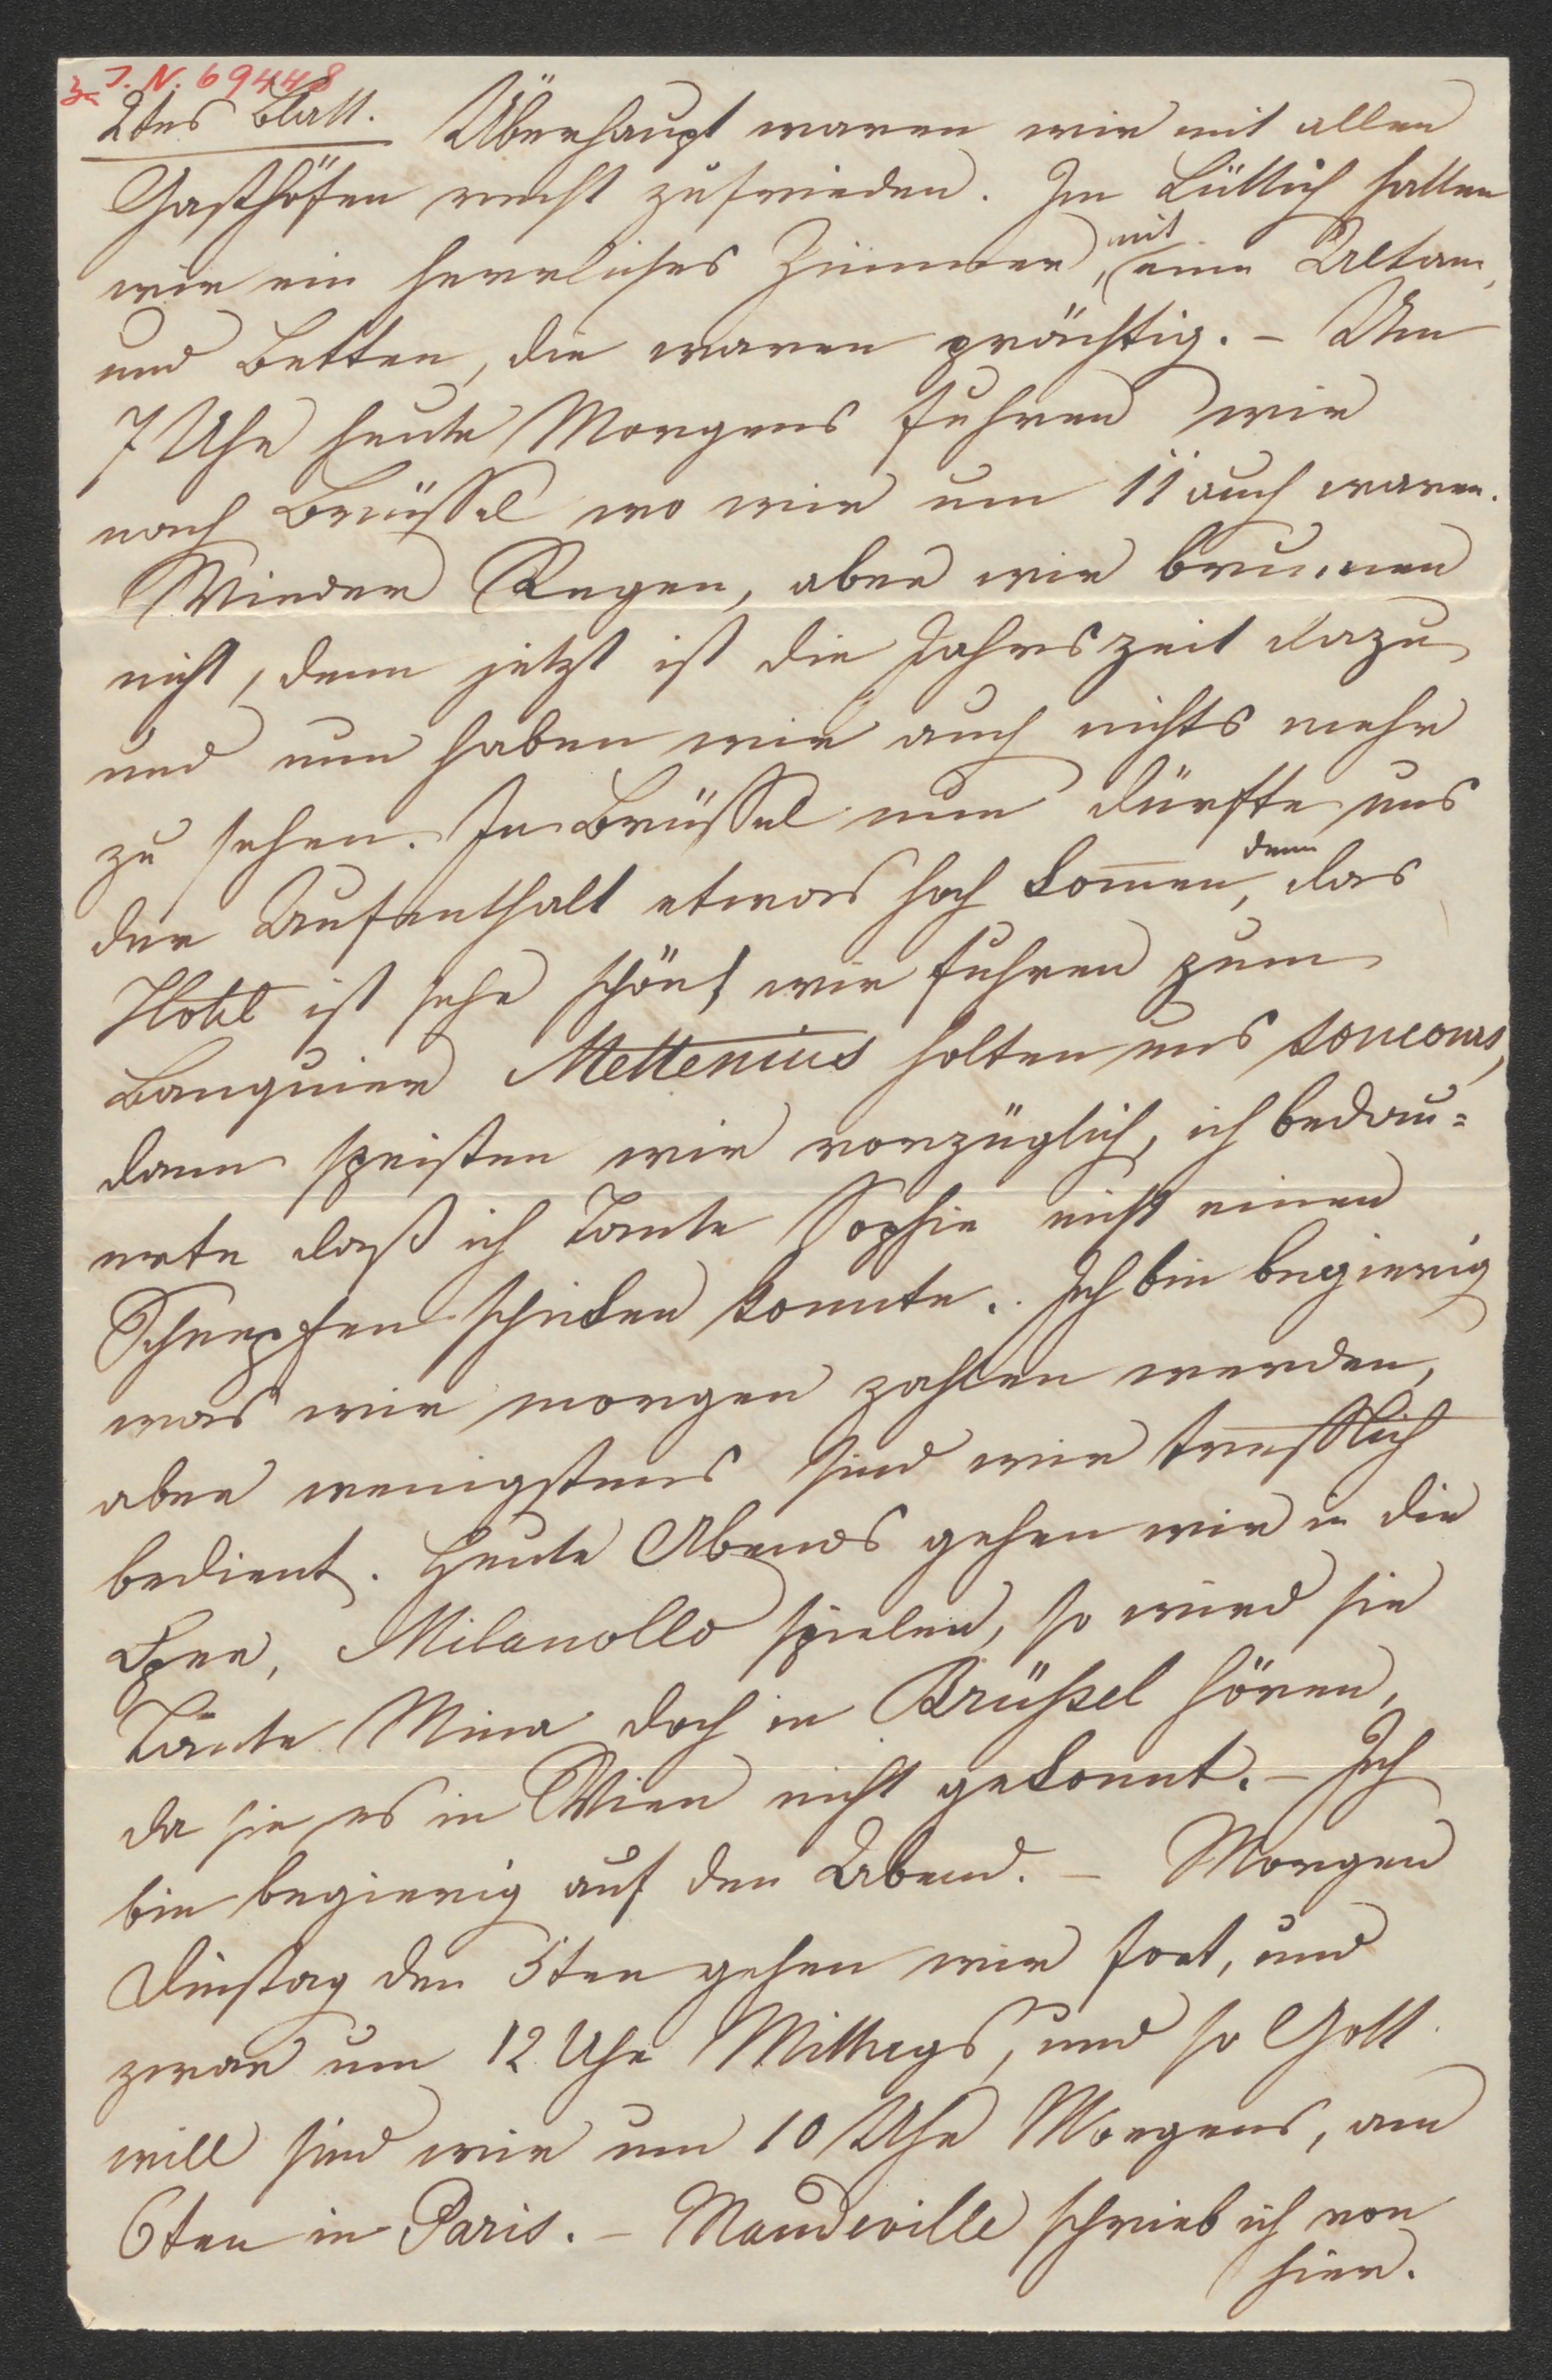 zu J. N. 69448
2tes Blatt. Überhaupt waren wir mit allen
Gasthöfen recht zufrieden. In Lüttich hatten
wir ein herrliches Zimmer, mit eine Altane,
und Betten, die waren prächtig. – Um
7 Uhr heute Morgens fuhren wir
nach Brüssel wo wir um 11 auch waren.
Wieder Regen, aber wir brummen
nicht, denn jetzt ist die Jahrszeit dazu
und nun haben wir auch nichts mehr
zu sehen. In Brüssel nun dürfte uns
der Aufenthalt etwas hoch kom̅en, denn das
Hotel ist sehr schön, wir fuhren zum
Banquier Mettenius holten uns
dann speisten wir vorzüglich, ich bedau=
erte daß ich Tante Sophie nicht einen
Schnepfen schicken konnte. Ich bin begierig
was wir morgen zahlen werden,
aber wenigstens sind wir trefflich
bedient. Heute Abends gehen wir in die
Oper, Milanollo spielen, so wird sie
Tante Mina doch in Brüßel hören,
da sie es in Wien nicht gekonnt. – Ich
bin begierig auf den Abend. – Morgen
Dinstag den 5ten gehen wir fort, und
zwar um 12 Uhr Mittags, und so Gott
will sind wir um 10 Uhr Morgens, am
6ten in Paris. – Mandeville schrieb ich von
hier.